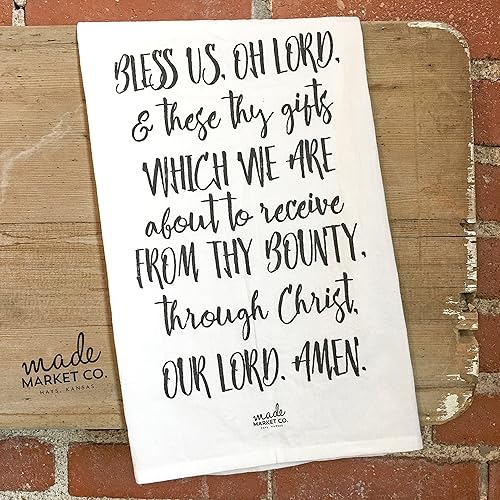 BLESS US, OH LORD,
& these thy gifts
WHICH WE ARE
about to receive
FROM THY BOUNTY,
through Christ,
OUR LORD. AMEN.
made
MARKET CO.
HAYS, KANSAS
made
MARKET CO.
HAYS, KANSAS